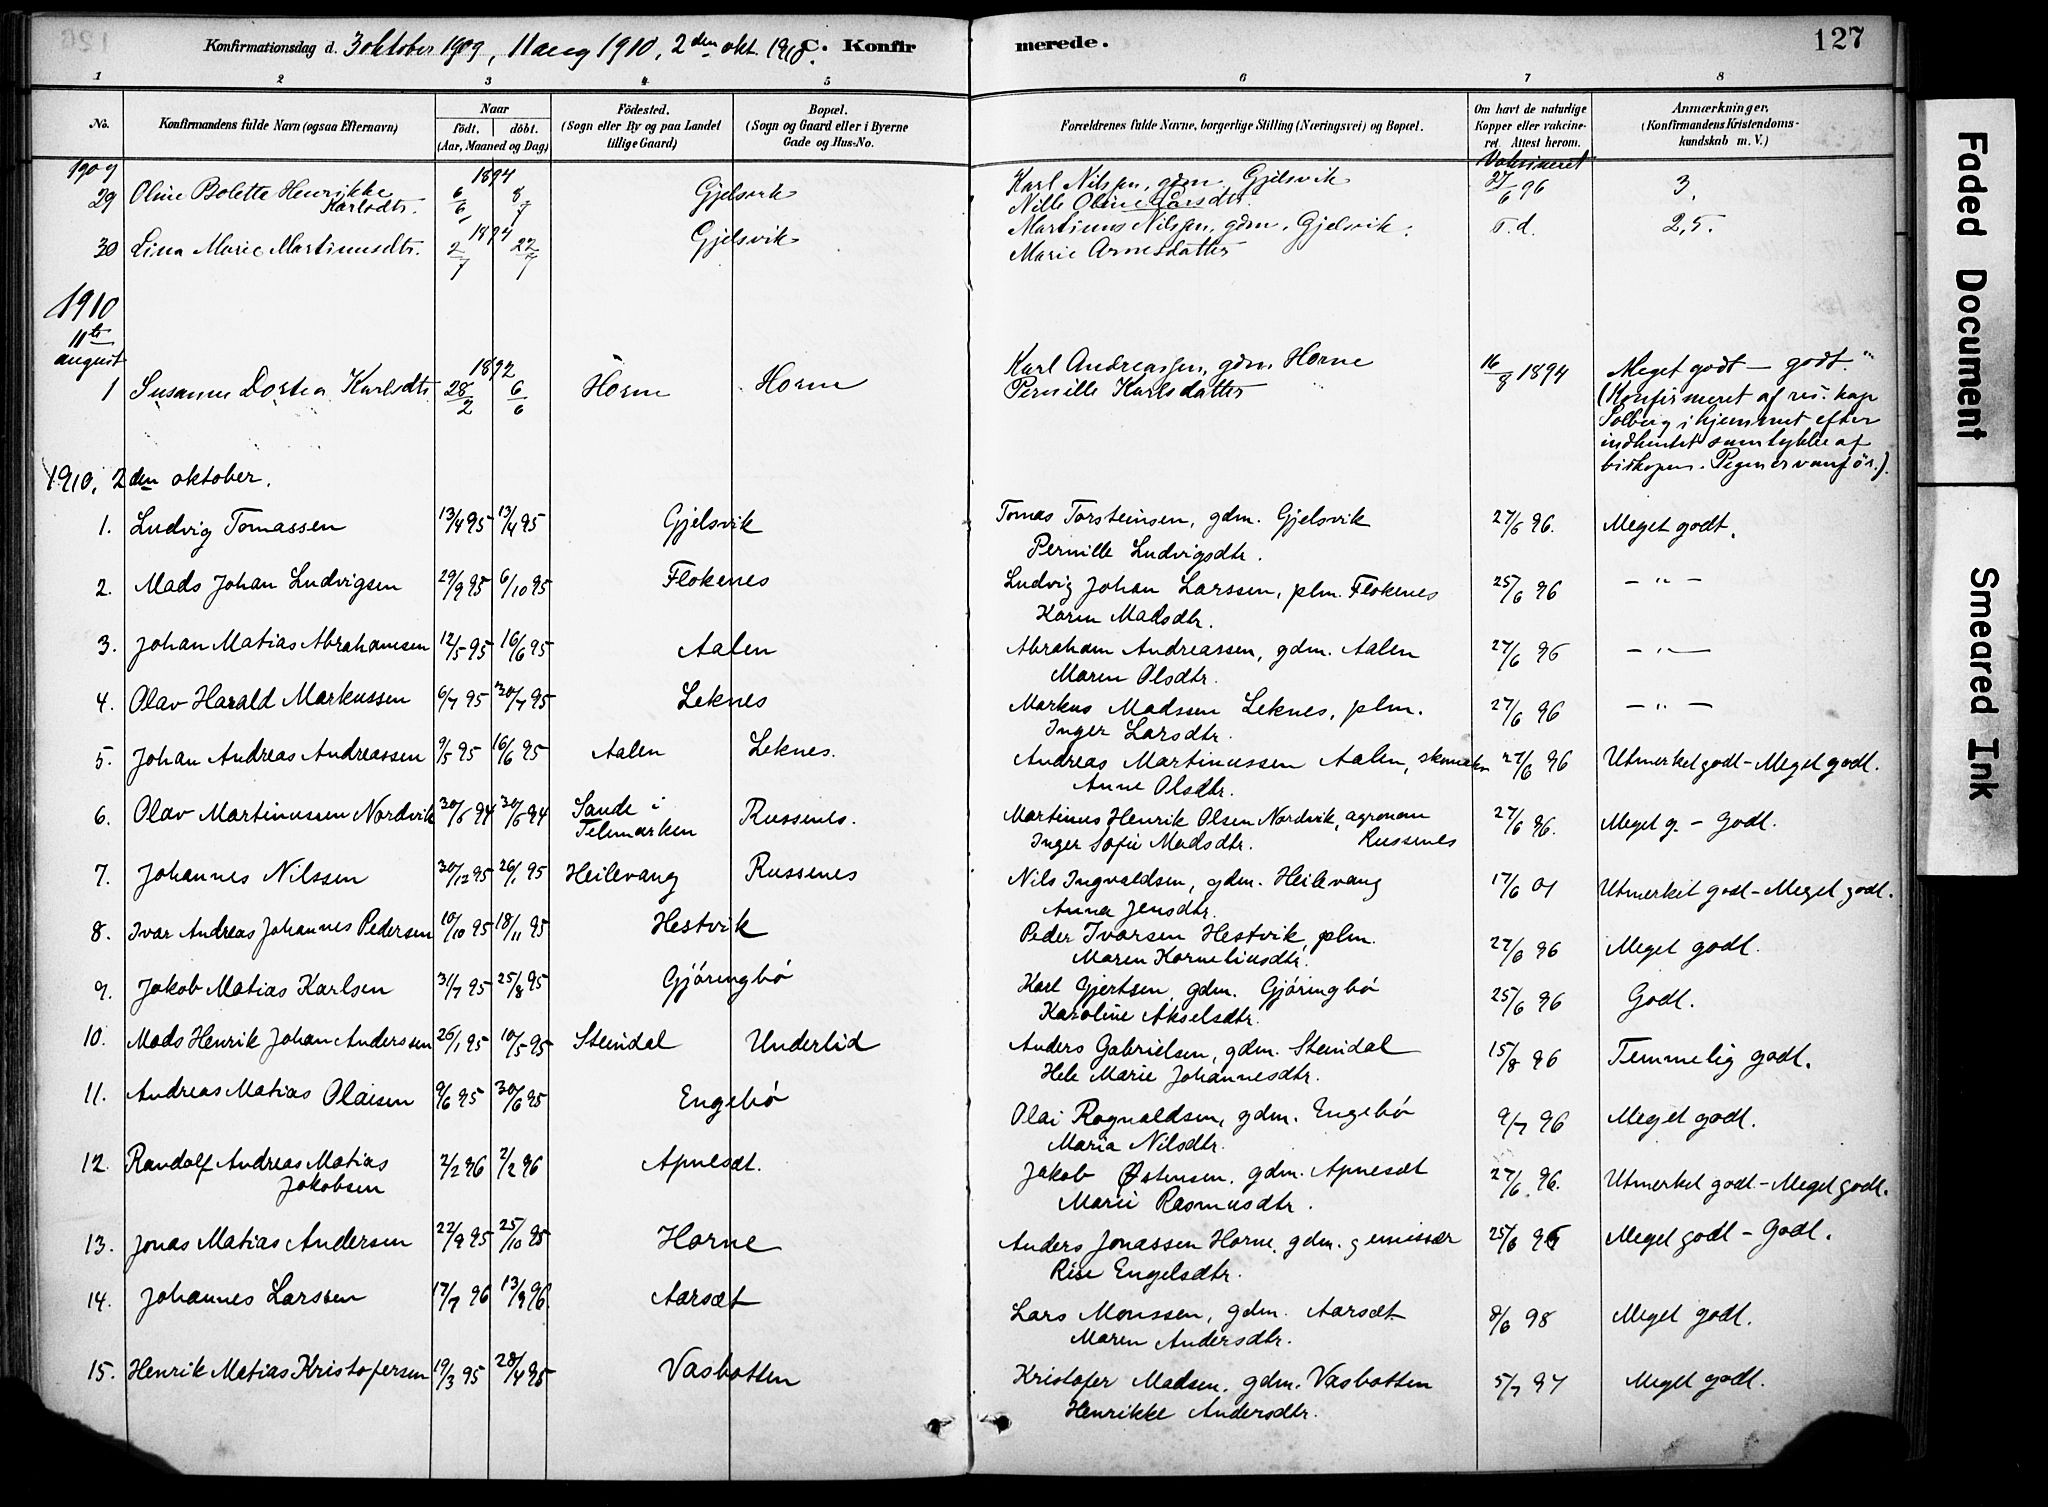 Konfirmationsdag d. 3 oktober 1909, 11 aug 1910, 2den okt. 1910. C. Konfirmerede. 127
1 2 3 4 5 6 7 8
No. Konfirmandens fulde Navn (ogsaa Efternavn) Naar födt. döbt. (Aar, Maaned og Dag) Födested. (Sogn eller By og paa Landet tillige Gaard) Bopæl. (Sogn og Gaard eller i Byerne Gade og Hus-No. Forældrenes fulde Navne, borgerlige Stilling (Næringsvei) og Bopæl. Om havt de naturlige Kopper eller vakcineret. Attest herom. Anmærkninger. (Konfirmandens Kristendomskundskab m. V.)
1909 1894 Vaksineret
29 Oline Boletta Henrikke Karlsdtr. 6/6 8/7 Gjelsvik Karl Nilsen, gdm. Gjelsvik 27/6 96 3.
Nille Oline Larsdtr.
30 Lina Marie Martinusdtr. 1894 2/7 22/7 Gjelsvik Martinus Nilsen, gdm. Gjelsvik. T.d. 2,5.
Marie Arnesdatter
1910
11te august
1 Susanne Dortea Karlsdtr. 1892 28/2 6/6 Horne Horne Karl Andreassen, gdm. Horne 16/8 1894 Meget godt – godt.
Pernille Karlsdatter (Konfirmeret af res. kap
Solberg i hjemmet efter
indhentet samtykke af
biskopen. Pigen er vanför.)
1910, 2den oktober.
1. Ludvig Tomassen 13/4 95 13/4 95 Gjelsvik Tomas Torsteinsen, gdm. Gjelsvik 27/6 96. Meget godt.
Pernille Ludvigsdtr.
2. Mads Johan Ludvigsen 29/9 95 6/10 95 Flokenes Ludvig Johan Larssen, plm. Flokenes 25/6 96 – " –
Karen Madsdtr.
3. Johan Matias Abrahamsen 12/5 95 16/6 95 Aalen Abraham Andreassen, gdm. Aalen 27/6 96 – " –
Maren Olsdtr.
4. Olav Harald Markussen 6/7 95 30/7 95 Leknes Markus Madssen Leknes, plm. 27/6 96 – " –
Inger Larsdtr.
5. Johan Andreas Andreassen 9/5 95 16/6 95 Aalen Leknes. Andreas Martinussen Aalen, 27/6 96 Utmerket godt – Meget godt.
Anne Olsdtr.
6. Olav Martinussen Nordvik 30/5 94 30/5 94 Sande i Telemarken Russenes. Martinus Henrik Olsen Nordvik, agronom 27/6 96. Meget g. – Godt.
Inger Sofie Madsdtr. Russenes
7. Johannes Nilssen 30/12 95 26/1 95 Heilevang Russenes Nils Ingvaldsen, gdm. Heilevang 17/6 01 Utmerket godt – Meget godt.
Anna Jensdtr.
8. Ivar Andreas Johannes Pedersen 10/10 95 18/11 95 Hestvik Peder Ivarsen Hestvik, plm. 27/6 96 Meget godt.
Maren Korneliusdtr.
9. Jakob Matias Karlsen 31/7 95 25/8 95 Gjöringbö Karl Gjertsen, gdm. Gjöringbö 25/6 96 Godt.
Karoline Akselsdtr.
10. Mads Henrik Johan Anderssen 26/1 95 10/5 95 Steindal Underlid Anders Gabrielsen, gdm. Steindal 15/8 96 Temmelig godt.
Hele Marie Johannesdtr.
11. Andreas Matias Olaisen 9/6 95 30/6 95 Engebö Olai Ragnvaldsen, gdm. Engebö 9/7 96 Meget godt.
Maria Nilsdtr.
12. Randolf Andreas Matias Jakobsen 2/2 96 2/2 96 Apnesæt. Jakob Østensen, gdm. Apnesæt 27/6 96. Utmerket godt – Meget godt.
Marie Rasmusdtr.
13. Jonas Matias Andersen 22/9 95 25/10 95 Horne Anders Jonassen Horne, gdm. g emissær 25/6 96 Meget godt – Godt.
Rise Engelsdtr.
14. Johannes Larssen 17/7 96 13/9 96. Aarsæt Lars Monssen, gdm. Aarsæt 8/6 98 Meget godt.
Maren Andersdtr.
15. Henrik Matias Kristofersen 19/3 95 28/4 95 Vasbotten Kristofer Madsen, gdm. Vasbotten 5/7 97 Meget godt.
Henrikke Andersdtr.
Faded Document
Smeared Ink